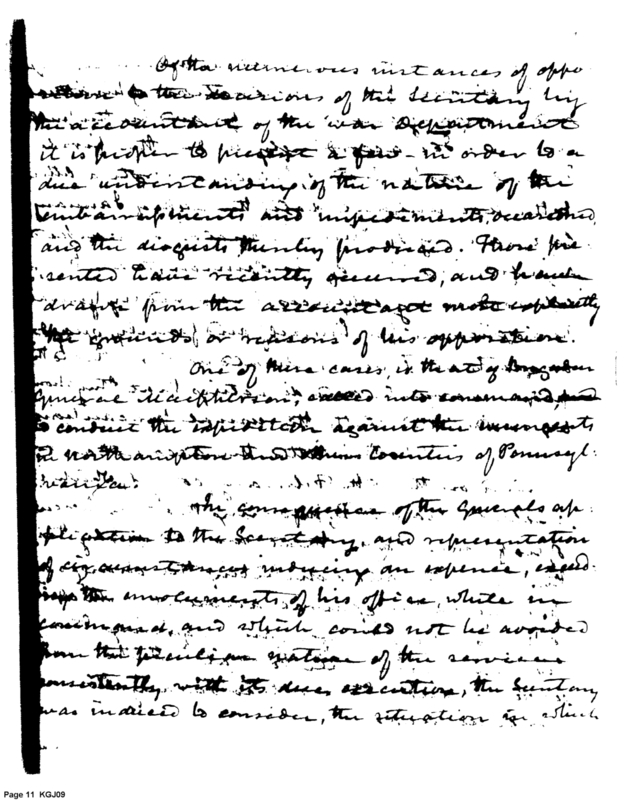 Of the numerous instances of oppo
sition to the decisions of the Secretary by
the accountant of the war Department
it is proper to present a few in order to a
due understanding of the nature of the
embarrassments and impediments occasioned,
and the disgusts thereby produced. Those pre
sented have recently occurred, and have
drawn from the accountant most explicitly
the grounds or reasons of his opposition.
One of these cases, is that of Brigadier
General Macpherson, called into command,
to conduct the expedition against the insurgents
in Northampton and other Counties of Pennsyl
vania.
In consequence of the Generals ap
plication to the Secretary, and representation
of circumstances inducing an expense, exceed
ing the emoluments of his office, while in
command, and which could not be avoided
from the peculiar nature of the services
consistently with its due execution, the Secretary
was induced to consider, the situation in which
Page 11 KGJ09